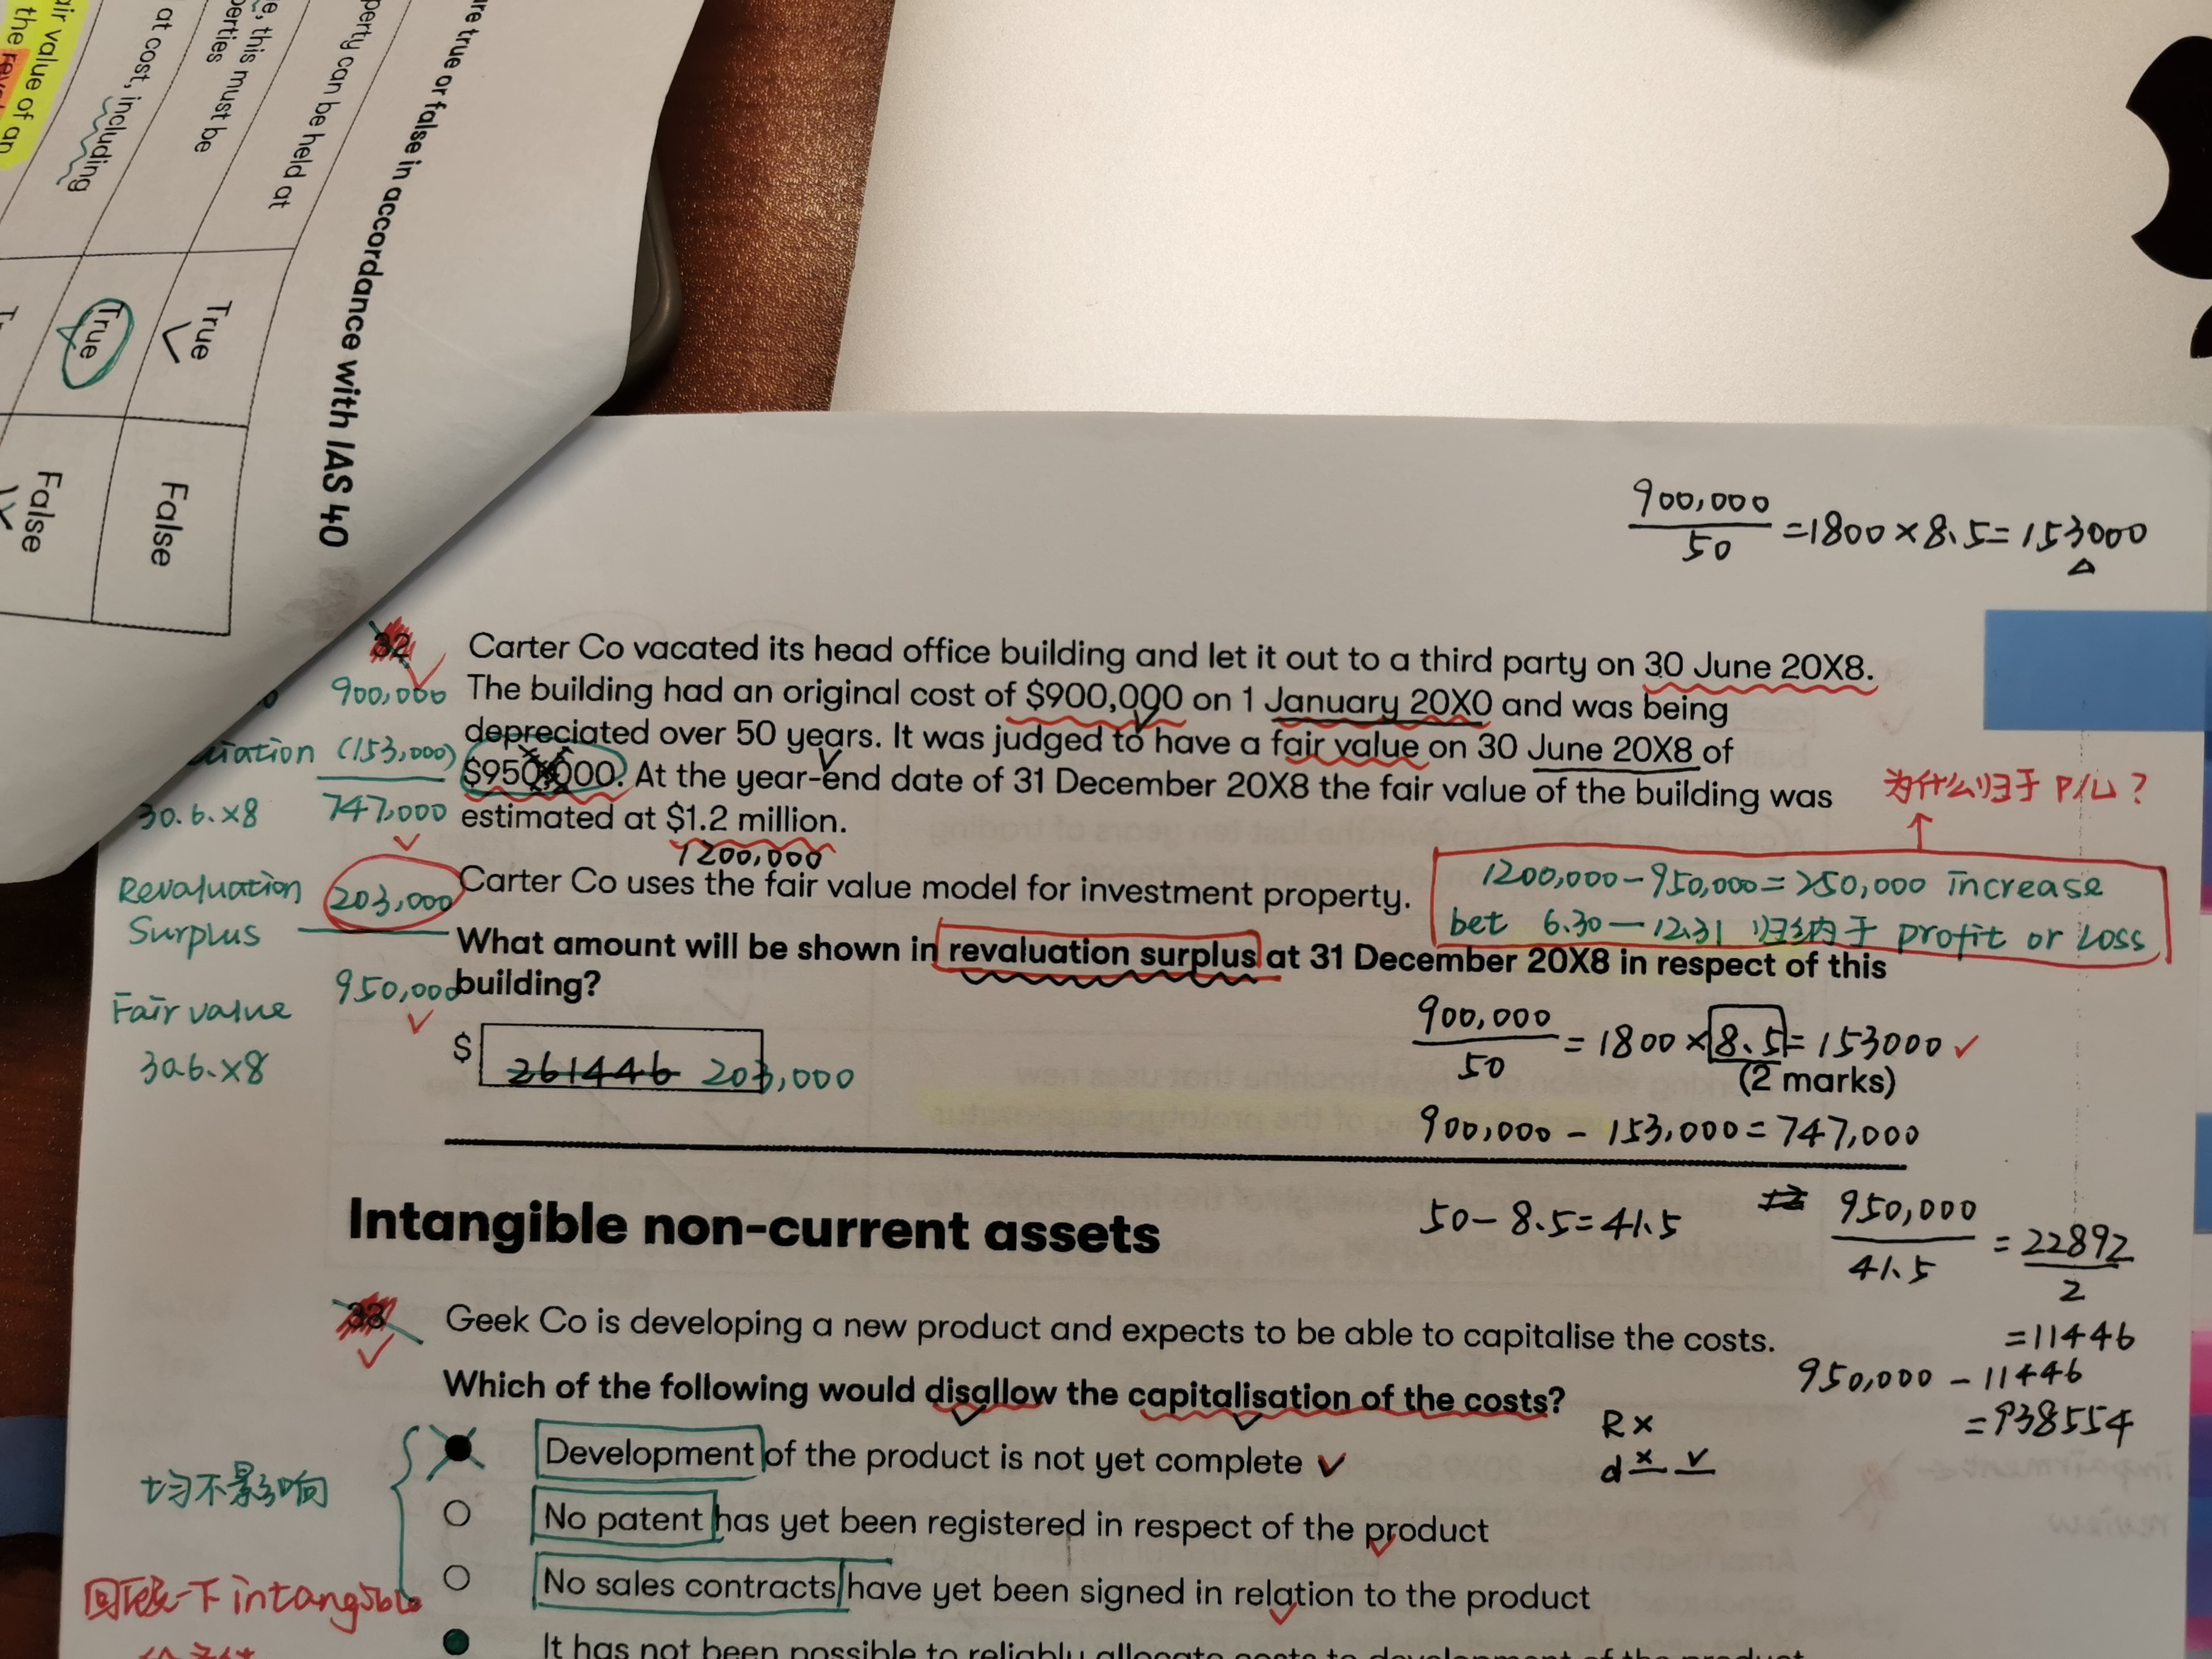 are true or false in accordance with IAS 40
perty can be held at
e, this must be
perties
True
False
at cost, including
True
False
air value of an
the
900,000
50
=1800×8.5=153000
32
Carter Co vacated its head office building and let it out to a third party on 30 June 20X8.
The building had an original cost of $900,000 on 1 January 20X0 and was being
depreciated over 50 years. It was judged to have a fair value on 30 June 20X8 of
$950,000. At the year-end date of 31 December 20X8 the fair value of the building was
estimated at $1.2 million.
1200,000
900,000
iation (153,000)
30.6.×8 747,000
Revaluation 203,000
Surplus
Fair value 950,000
30.6.×8
为什么归于 P/L?
Carter Co uses the fair value model for investment property.
1200,000-950,000=250,000 increase
bet 6.30—12.31 归纳于 profit or Loss
What amount will be shown in revaluation surplus at 31 December 20X8 in respect of this
building?
$ 261446 203,000
900,000
50
=1800×8.5=153000
(2 marks)
900,000-153,000=747,000
Intangible non-current assets
50-8.5=41.5
950,000
41.5
=22892
2
=11446
950,000-11446
=938554
33
Geek Co is developing a new product and expects to be able to capitalise the costs.
Which of the following would disallow the capitalisation of the costs?
R×
d × ✓
Development of the product is not yet complete
No patent has yet been registered in respect of the product
No sales contracts have yet been signed in relation to the product
It has not been possible to reliably allocate costs to development of the product
均不影响
回顾一下intangible
impairment
review